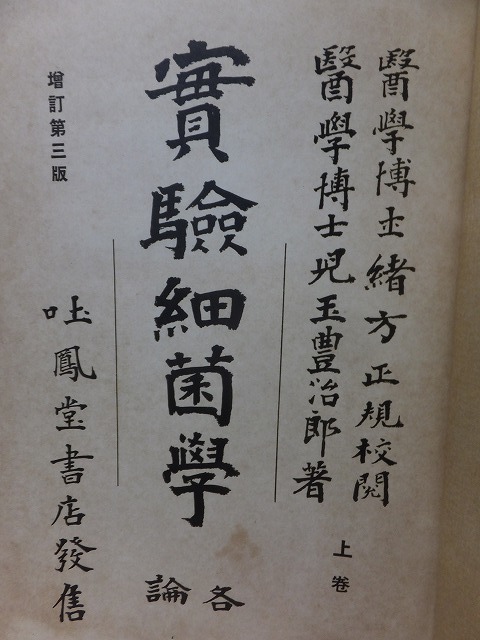 醫學博士緒方正規校閱
醫學博士兒玉豊治郎著
上卷
實驗細菌學
各論
增訂第三版
吐鳳堂書店發售